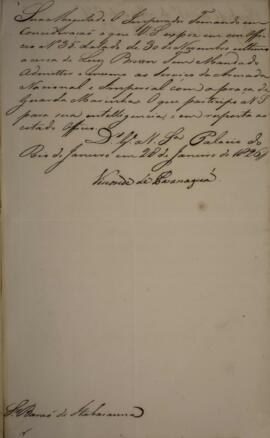 Sua Magestade O Imperador Tomando em
Consideração o que V. S. expoz em seu Officio
Nº 35 datado de 30 de Novembro ultimo
acerca de Luiz Brown Tem Mandado
Admittir o mesmo ao Serviço da Armada
Nacional e Imperial com a praça de
Guarda Marinha O que participo a V. S.
para sua intelligencia, e em resposta ao
citado Officio.
Ds. Ge. a V. Sa. Palacio do
Rio de Janeiro em 28 de Janeiro de 1826
Visconde de Paranaguá
Sr. Barão de Itabaianna